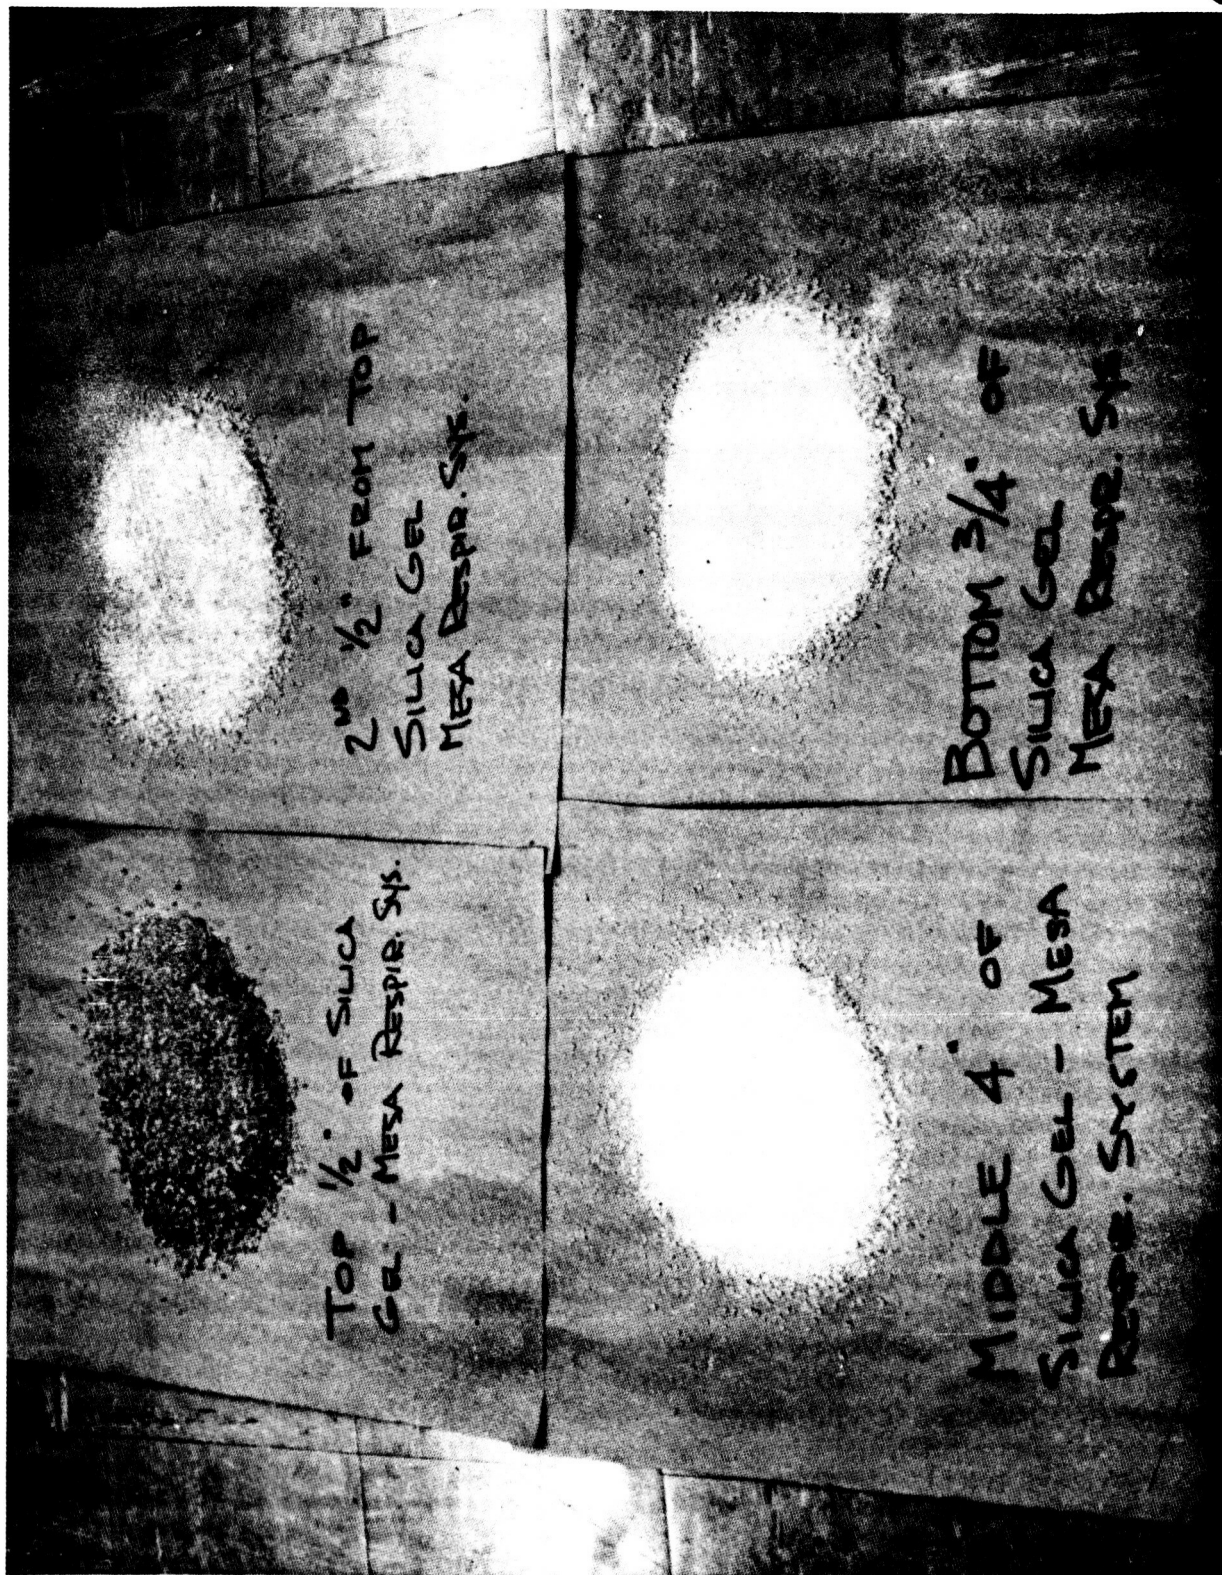 TOP 1/2" OF SILICA
GEL - MESA RESPIR. SYS.
2ND 1/2" FROM TOP
SILICA GEL
MESA RESPIR. SYS.
MIDDLE 4" OF
SILICA GEL - MESA
RESPIR. SYSTEM
BOTTOM 3/4" OF
SILICA GEL
MESA RESPIR. SYS.